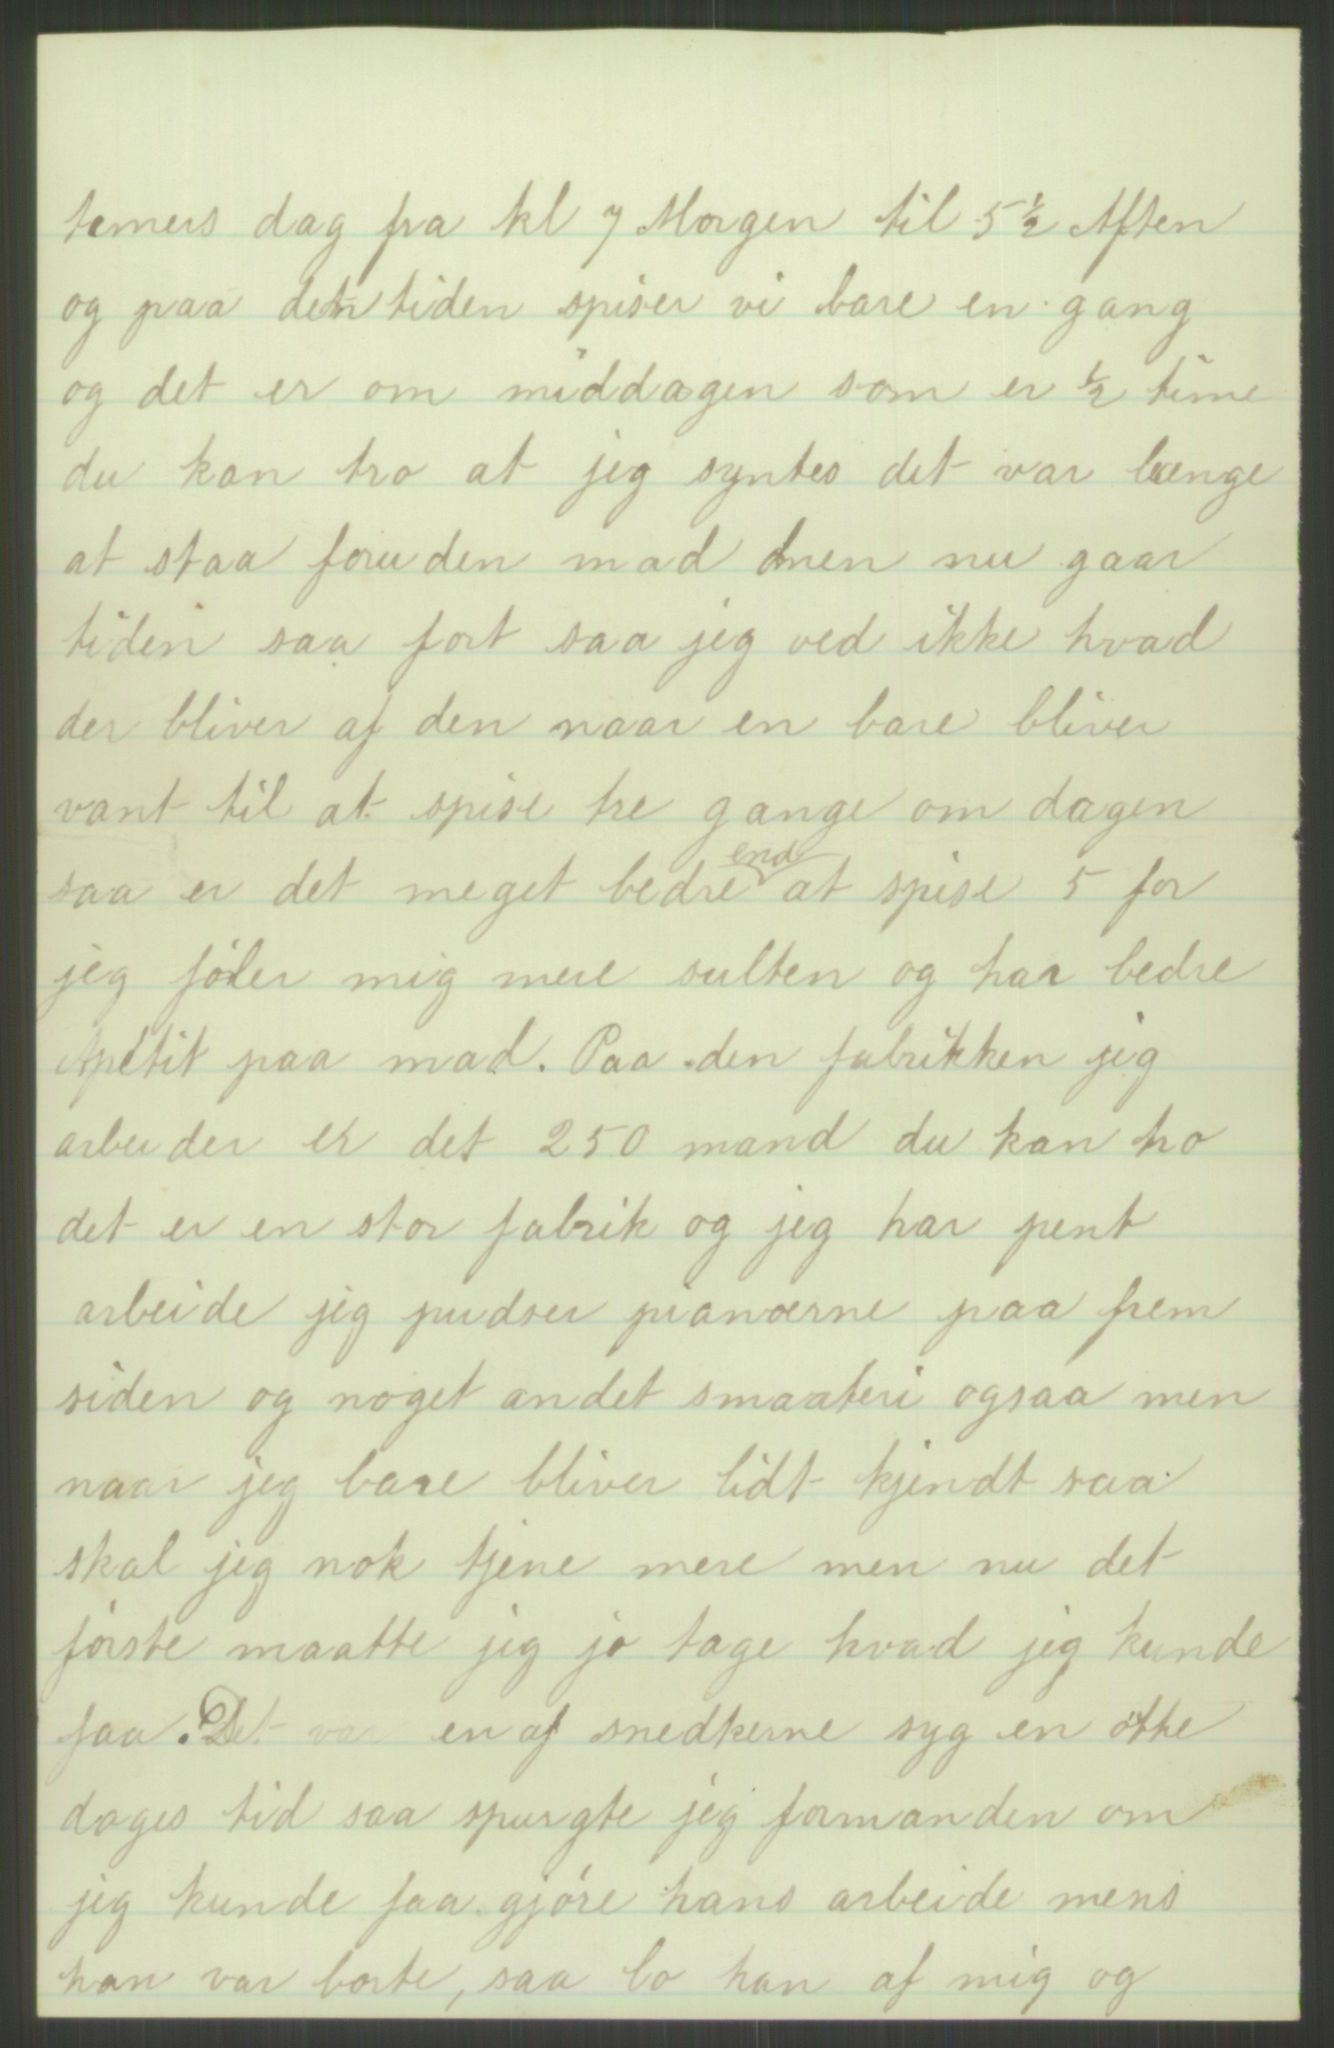 temers dag fra kl 7 Morgen til 5 ½ Aften
og paa den tiden spiser vi bare en gang
og det er om middagen som er ½ time
du kan tro at jeg syntes det var længe
at staa foruden mad men nu gaar
tiden saa fort saa jeg ved ikke hvad
der bliver af den naar en bare bliver
vant til at spise tre gange om dagen
saa er det meget bedre end at spise 5 for
jeg föler mig mere sulten og har bedre
Apetit paa mad. Paa den fabrikken jeg
arbeider er det 250 mand du kan tro
det er en stor fabrik og jeg har pent
arbeide jeg pudser pianoerne paa frem
siden og noget andet smaateri ogsaa men
naar jeg bare bliver lidt kjendt saa
skal jeg nok tjene mere men nu det
förste maatte jeg jo tage hvad jeg kunde
faa. Det var en af snedkerne syg en otte
dages tid saa spurgte jeg formanden om
jeg kunde faa gjöre hans arbeide mens
han var borte, saa lo han af mig og